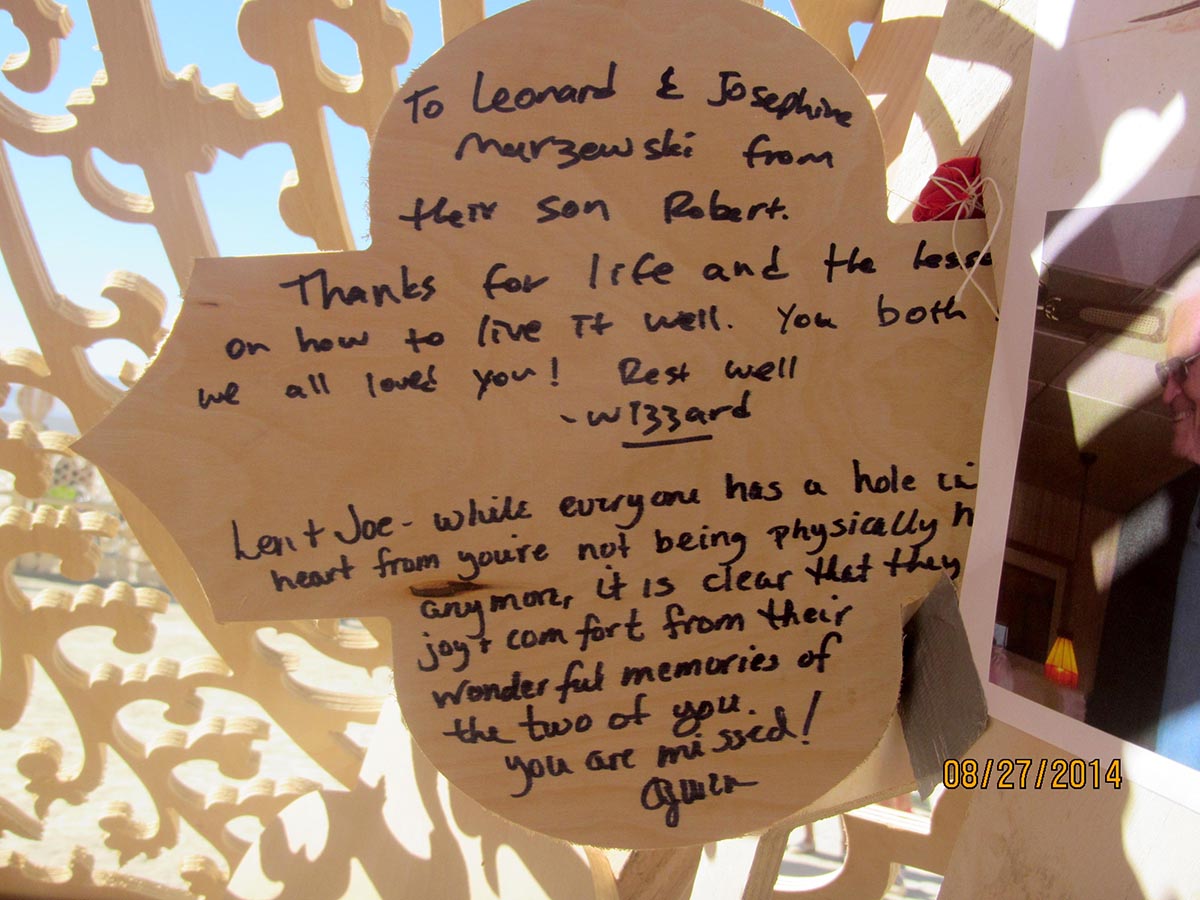 To Leonard & Josephine
Marzewski from
their son Robert.
Thanks for life and the lesso
on how to live it well. You both
we all loved you! Rest well
- Wizzard
Len + Joe - while everyone has a hole
heart from you're not being physically h
anymore, it is clear that they
joy + comfort from their
wonderful memories of
the two of you.
you are missed!
08/27/2014